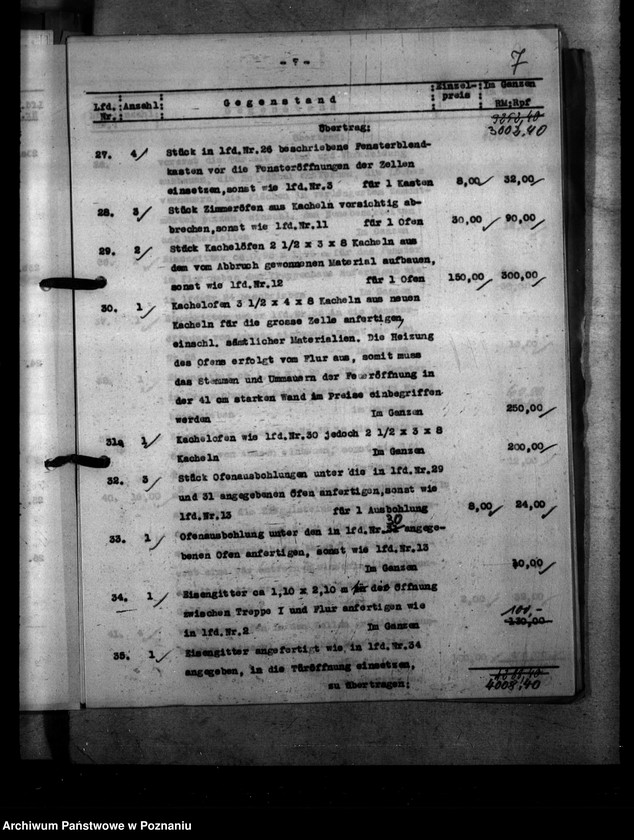 - 7 -
7
Lfd. Nr. Anzahl: Gegenstand Einzelpreis Im Ganzen RM: Rpf
Übertrag:
3003,40
27. 4 Stück in lfd.Nr.26 beschriebene Fensterblend- kasten vor die Fensteröffnungen der Zellen
einsetzen,sonst wie lfd.Nr.3 für 1 Kasten 8,00 32,00
28. 3 Stück Zimmeröfen aus Kacheln vorsichtig ab-
brechen,sonst wie lfd.Nr.11 für 1 Ofen 30,00 90,00
29. 2 Stück Kachelöfen 2 1/2 x 3 x 8 Kacheln aus
dem vom Abbruch gewonnenen Material aufbauen,
sonst wie lfd.Nr.12 für 1 Ofen 150,00 300,00
30. 1 Kachelofen 3 1/2 x 4 x 8 Kacheln aus neuen
Kacheln für die grosse Zelle anfertigen,
einschl. sämtlicher Materialien. Die Heizung
des Ofens erfolgt vom Flur aus, somit muss
das Stemmen und Ummauern der Feueröffnung in
der 41 cm starken Wand im Preise einbegriffen
werden Im Ganzen 250,00
31. 1 Kachelofen wie lfd.Nr.30 jedoch 2 1/2 x 3 x 8
Kacheln Im Ganzen 200,00
32. 3 Stück Ofenausbohlungen unter die in lfd.Nr.29
und 31 angegebenen Öfen anfertigen,sonst wie
lfd.Nr.13 für 1 Ausbohlung 8,00 24,00
33. 1 Ofenausbohlung unter den in lfd.Nr. 30 angege-
benen Ofen anfertigen, sonst wie lfd.Nr.13
Im Ganzen 10,00
34. 1 Eisengitter ca 1,10 x 2,10 m der Öffnung
zwischen Treppe I und Flur anfertigen wie
in lfd.Nr.2 Im Ganzen 130,00
35. 1 Eisengitter angefertigt wie in lfd.Nr.34
angegeben, in die Türöffnung einsetzen,
zu übertragen: 4008,40
Archiwum Państwowe w Poznaniu